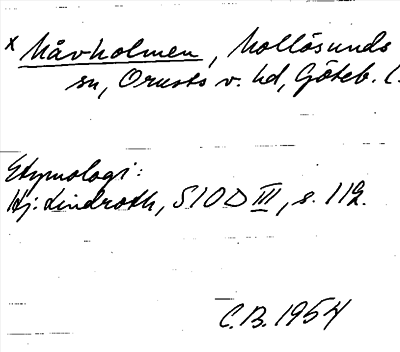 x Måvholmen, Mollösunds
sn, Orusts v. hd, Göteb. l.
Etymologi:
Hj. Lindroth, SIOD III, s. 112.
C.B. 1954